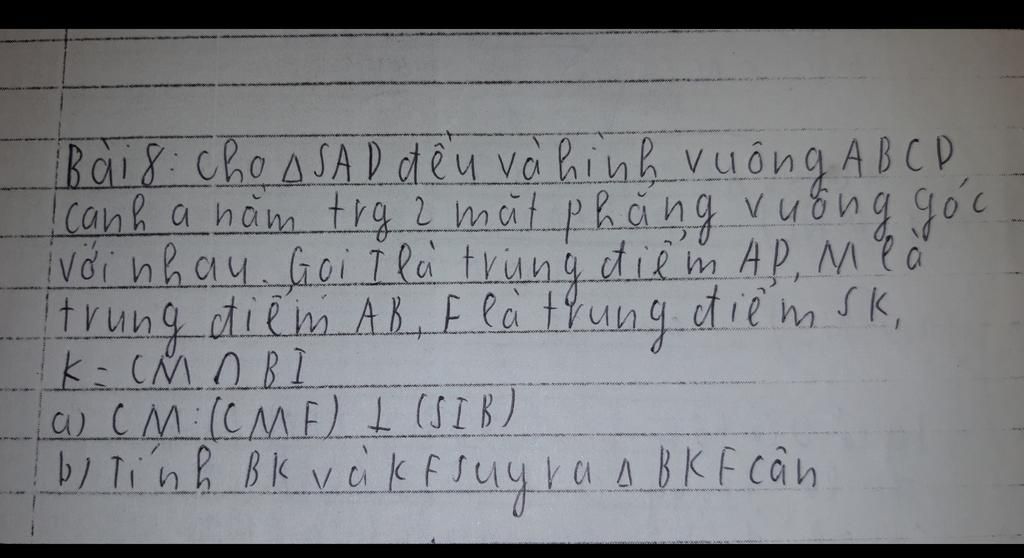 Bài 8: Cho Δ SAD đều và hình vuông ABCD
cạnh a nằm trg 2 mặt phẳng vuông góc
với nhau. Gọi I là trung điểm AD, M là
trung điểm AB, F là trung điểm SK,
K = CM ∩ BI
a) CM: (CMF) ⊥ (SIB)
b) Tính BK và KF suy ra Δ BKF cân